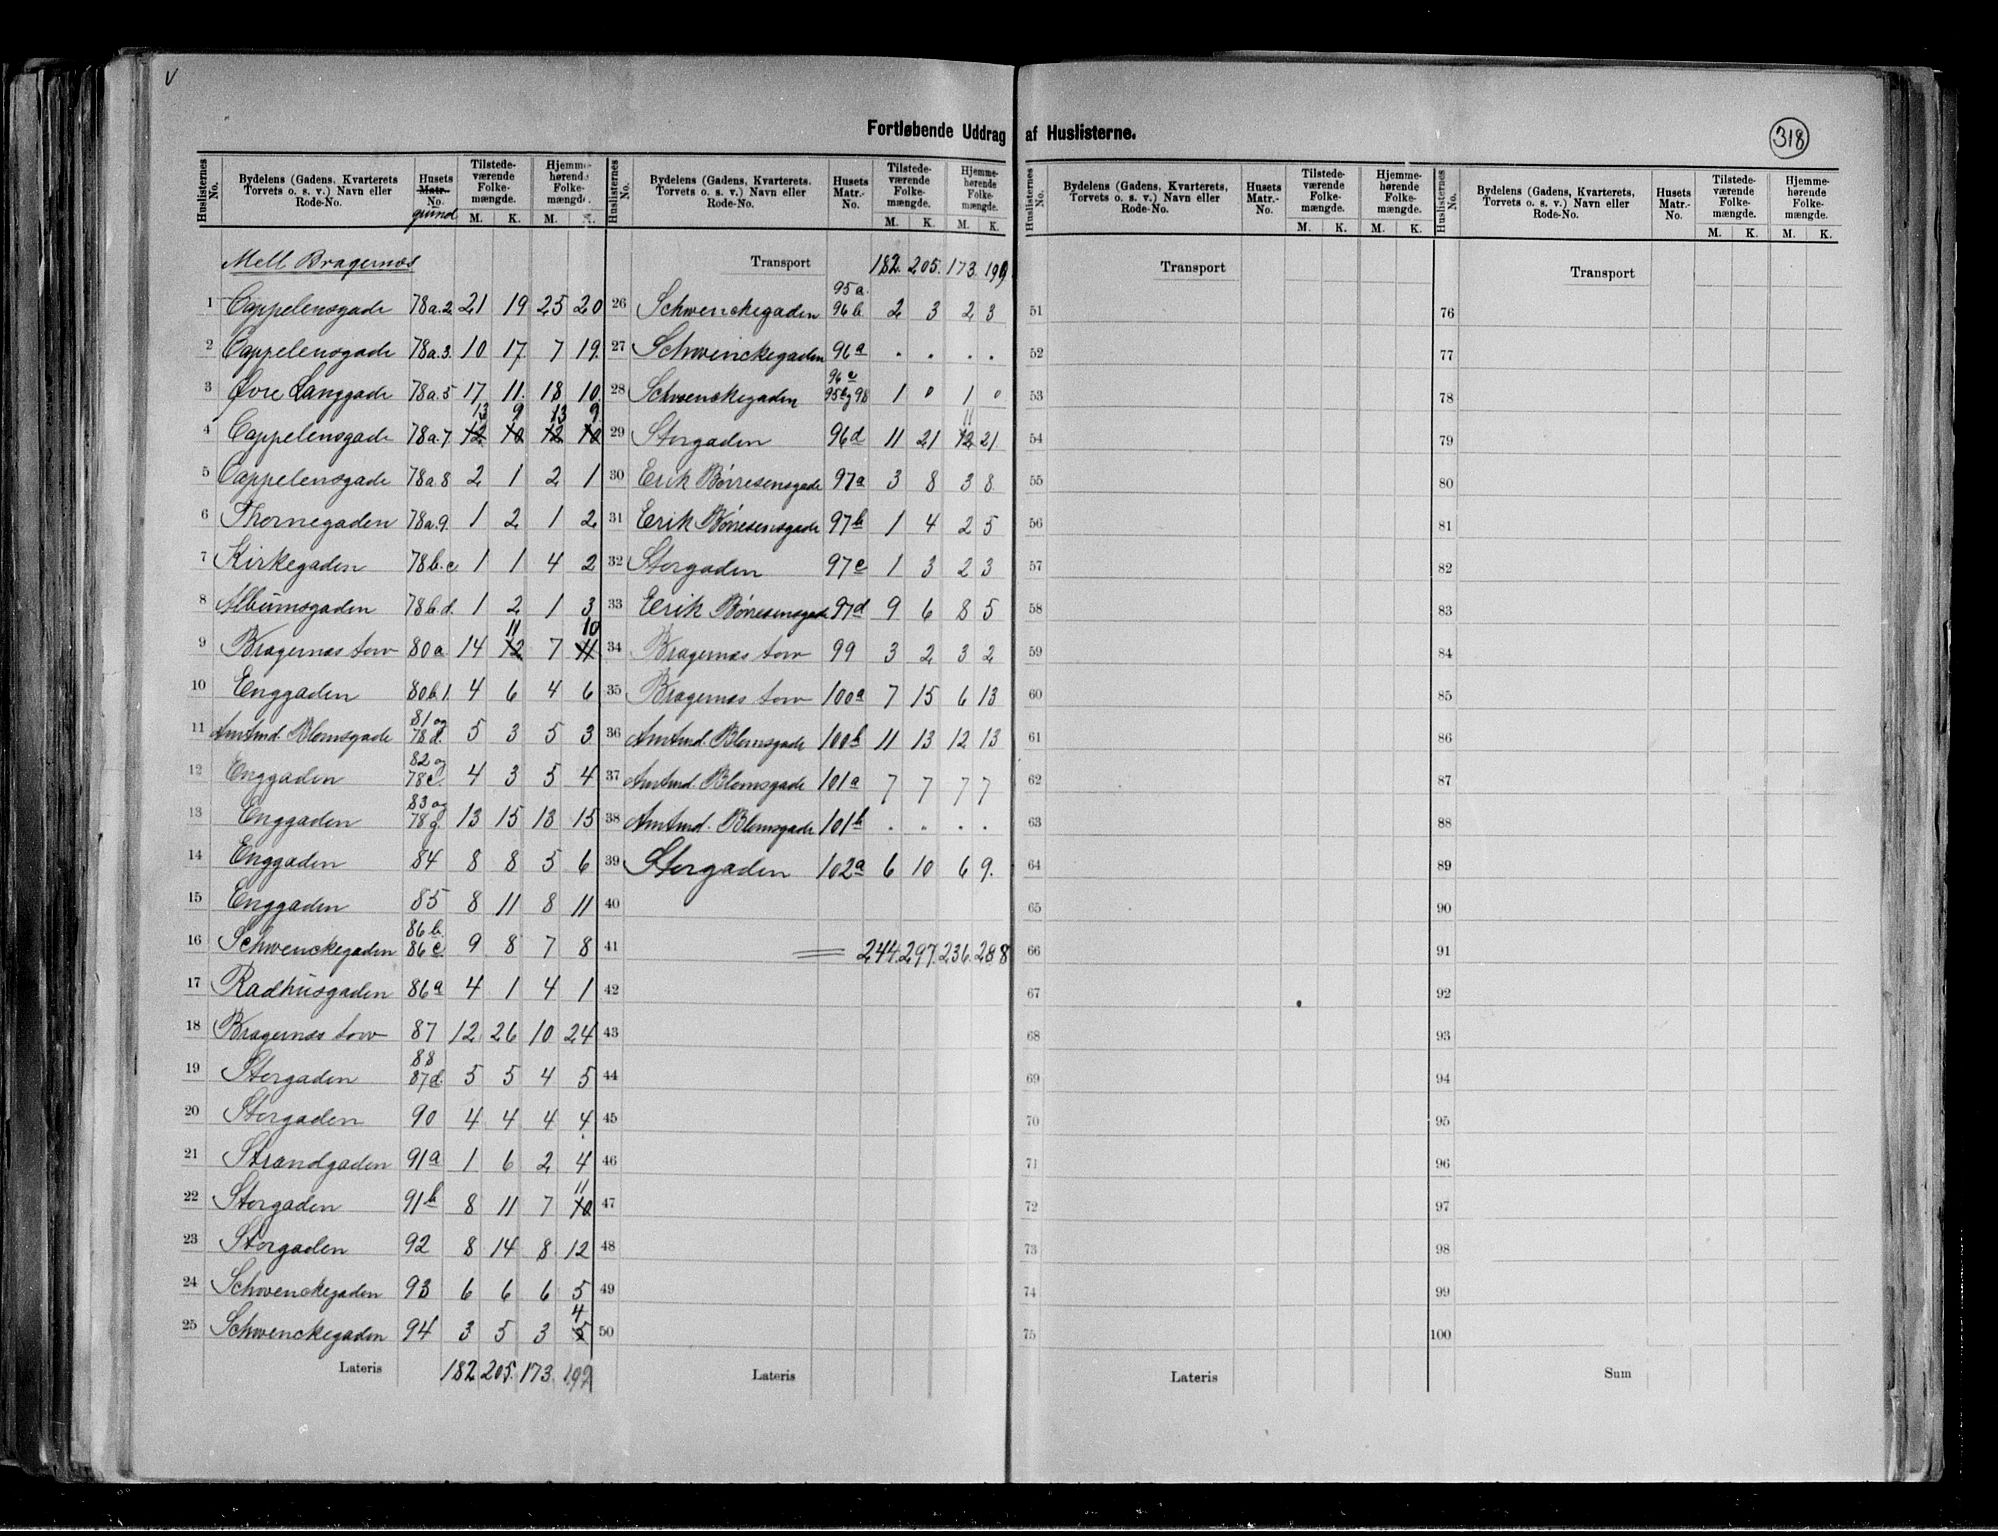 V
Fortløbende Uddrag af Huslisterne.
318
Huslisternes No. | Bydelens (Gadens, Kvarterets Torvets o. s. v.) Navn eller Rode-No. | Husets Matr.- No. grund | Tilstedeværende Folkemængde. M. K. | Hjemmehørende Folkemængde. M. K.
Mell Bragernæs
1 Cappelensgade 78a.2 21 19 25 20
2 Cappelensgade 78a.3. 10 17. 7 19.
3 Øvre Langgade 78a.5 17 11. 18 10.
13 9 13 9
4 Cappelensgade 78a.7. 12 10 12 10
5 Cappelensgade 78a.8 2 1 2 1
6 Thornegaden 78a.9. 1 2 1 2
7 Kirkegaden 78b.c 1 1 4 2
8 Albumsgaden 78b.d. 1 2 1 3
11 10
9 Bragernæs torv 80a 14 12 7 11
10 Enggaden 80b.1. 4 6 4 6
11 Amtmd. Blomsgade 81 og 78d. 5 3 5 3
12 Enggaden 82 og 78c. 4 3 5 4
13 Enggaden 83 og 78g. 13 15 13 15
14 Enggaden 84 8 8 5 6
15 Enggaden 85 8 11 8 11
16 Schwenckegaden 86b. 86c. 9 8 7 8
17 Radhusgaden 86a 4 1 4 1
18 Bragernæs torv 87 12 26 10 24
19 Storgaden 88 87d. 5 5 4 5
20 Storgaden 90 4 4 4 4
21 Strandgaden 91a 1 6 2 4
11
22 Storgaden 91b 8 11 7 10
23 Storgaden 92 8 14 8 12
24 Schwenckegaden 93 6 6 6 5
4
25 Schwenckegaden 94 3 5 3 5
Lateris 182 205. 173.
Huslisternes No. | Bydelens (Gadens, Kvarterets. Torvets o. s. v.) Navn eller Rode-No. | Husets Matr.- No. | Tilstedeværende Folkemængde. M. K. | Hjemmehørende Folkemængde. M. K.
Transport 182. 205. 173.
26 Schwenckegaden 95a. 96b 2 3 2 3
27 Schwenckegaden 96a . . . .
28 Schwenckegaden 96c 95b og 98 1 0 1 0
11
29 Storgaden 96d 11 21 12 21.
30 Erik Børresensgade 97a 3 8 3 8
31 Erik Børresensgade 97b 1 4 2 5
32 Storgaden 97c 1 3 2 3
33 Erik Børresensgade 97d 9 6 8 5
34 Bragernæs torv 99 3 2 3 2
35 Bragernæs torv 100a 7 15 6 13
36 Amtmd. Blomsgade 100b 11 13 12 13
37 Amtmd. Blomsgade 101a 7 7 7 7
38 Amtmd. Blomsgade 101b . . . .
39 Storgaden 102a 6 10 6 9.
40
41 244. 297. 236. 288
42
43
44
45
46
47
48
49
50
Lateris
Huslisternes No. | Bydelens (Gadens, Kvarterets, Torvets o. s. v.) Navn eller Rode-No. | Husets Matr.- No. | Tilstedeværende Folkemængde. M. K. | Hjemmehørende Folkemængde. M. K.
Transport
51
52
53
54
55
56
57
58
59
60
61
62
63
64
65
66
67
68
69
70
71
72
73
74
75
Lateris
Huslisternes No. | Bydelens (Gadens, Kvarterets, Torvets o. s. v.) Navn eller Rode-No. | Husets Matr.- No. | Tilstedeværende Folkemængde. M. K. | Hjemmehørende Folkemængde. M. K.
Transport
76
77
78
79
80
81
82
83
84
85
86
87
88
89
90
91
92
93
94
95
96
97
98
99
100
Sum